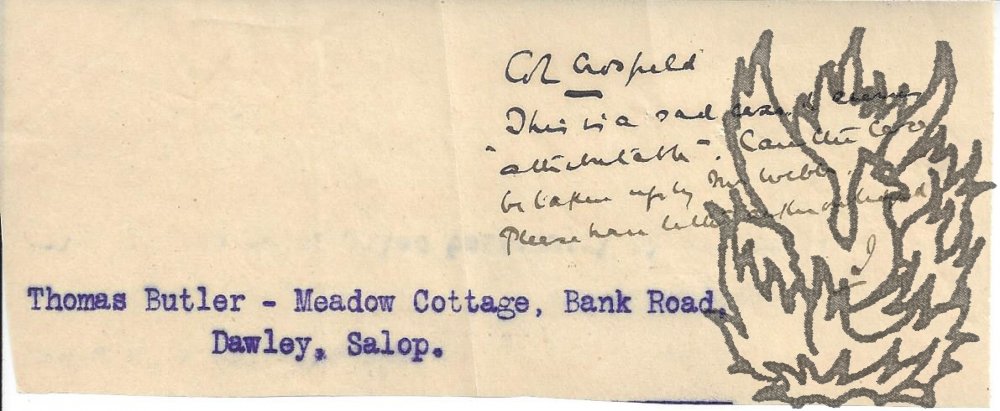 Col Crosfield
This is a sad case &
"attributable". Can the case
be taken up by Mr Webb
Please have letter acknowledged
Thomas Butler - Meadow Cottage, Bank Road,
Dawley, Salop.